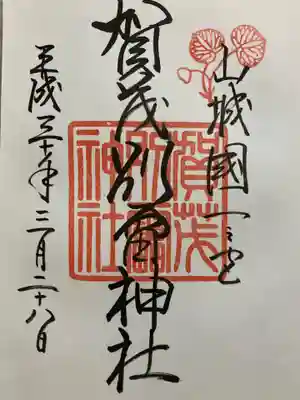 山城國一之宮
賀茂別雷神社
平成三十年三月二十八日
賀茂別雷神社